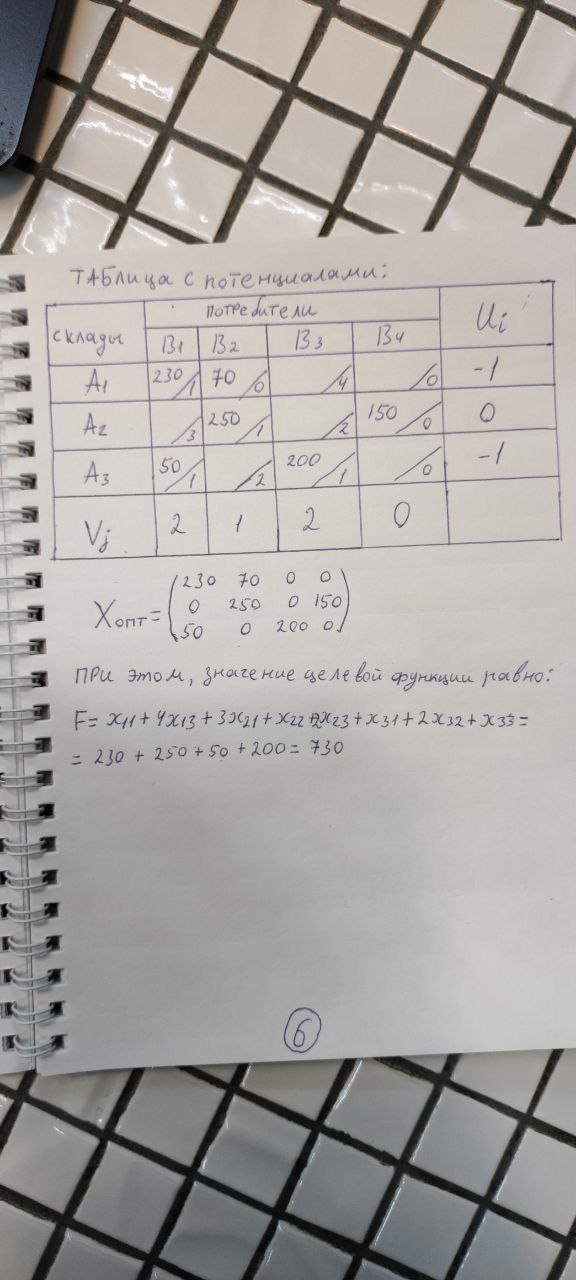 Таблица с потенциалами:
склады потребители Ui
B1 B2 B3 B4
A1 230/1 70/0 /4 /0 -1
A2 /3 250/1 /2 150/0 0
A3 50/1 /2 200/1 /0 -1
Vj 2 1 2 0
230 70 0 0
Xопт= 0 250 0 150
50 0 200 0
при этом, значение целевой функции равно:
F= x11+4x13+3x21+x22+2x23+x31+2x32+x33=
= 230+250+50+200=730
6